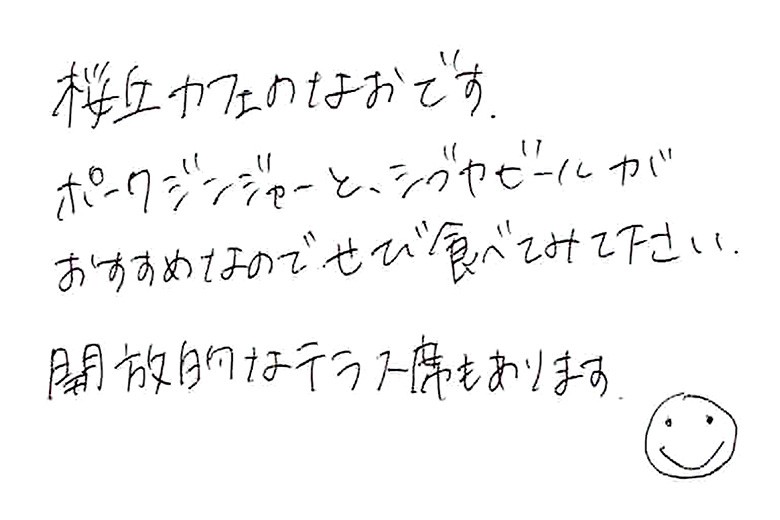 桜丘カフェのなおです.
ポークジンジャーと、シブヤビールが
おすすめなのでぜひ食べてみて下さい.
開放的なテラス席もあります.